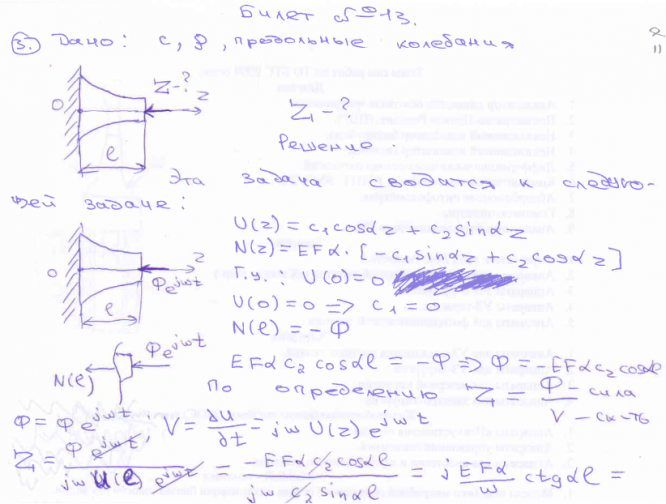 Билет №13.
3. Дано: c, ρ, продольные колебания
Z-?
0
z
l
Z-?
Решение.
Эта задача сводится к следую-
щей задаче:
U(z) = c₁cosαz + c₂sinαz
N(z) = EFα·[-c₁sinαz + c₂cosαz]
0
z
Φe^{jωt}
l
Г.у.: U(0)=0
U(0)=0 => c₁=0
N(l) = -Φ
N(l)
Φe^{jωt}
EFα c₂ cosαl = -Φ => Φ = -EFα c₂ cosαl
По определению Z = Φ - сила / V - ск-ть
Φ = Φ e^{jωt}; V = ∂U/∂t = jω U(z) e^{jωt}
Z = Φ e^{jωt} / jω U(l) e^{jωt} = -EFα c₂ cosαl / jω c₂ sinαl = j EFα/ω ctgαl =